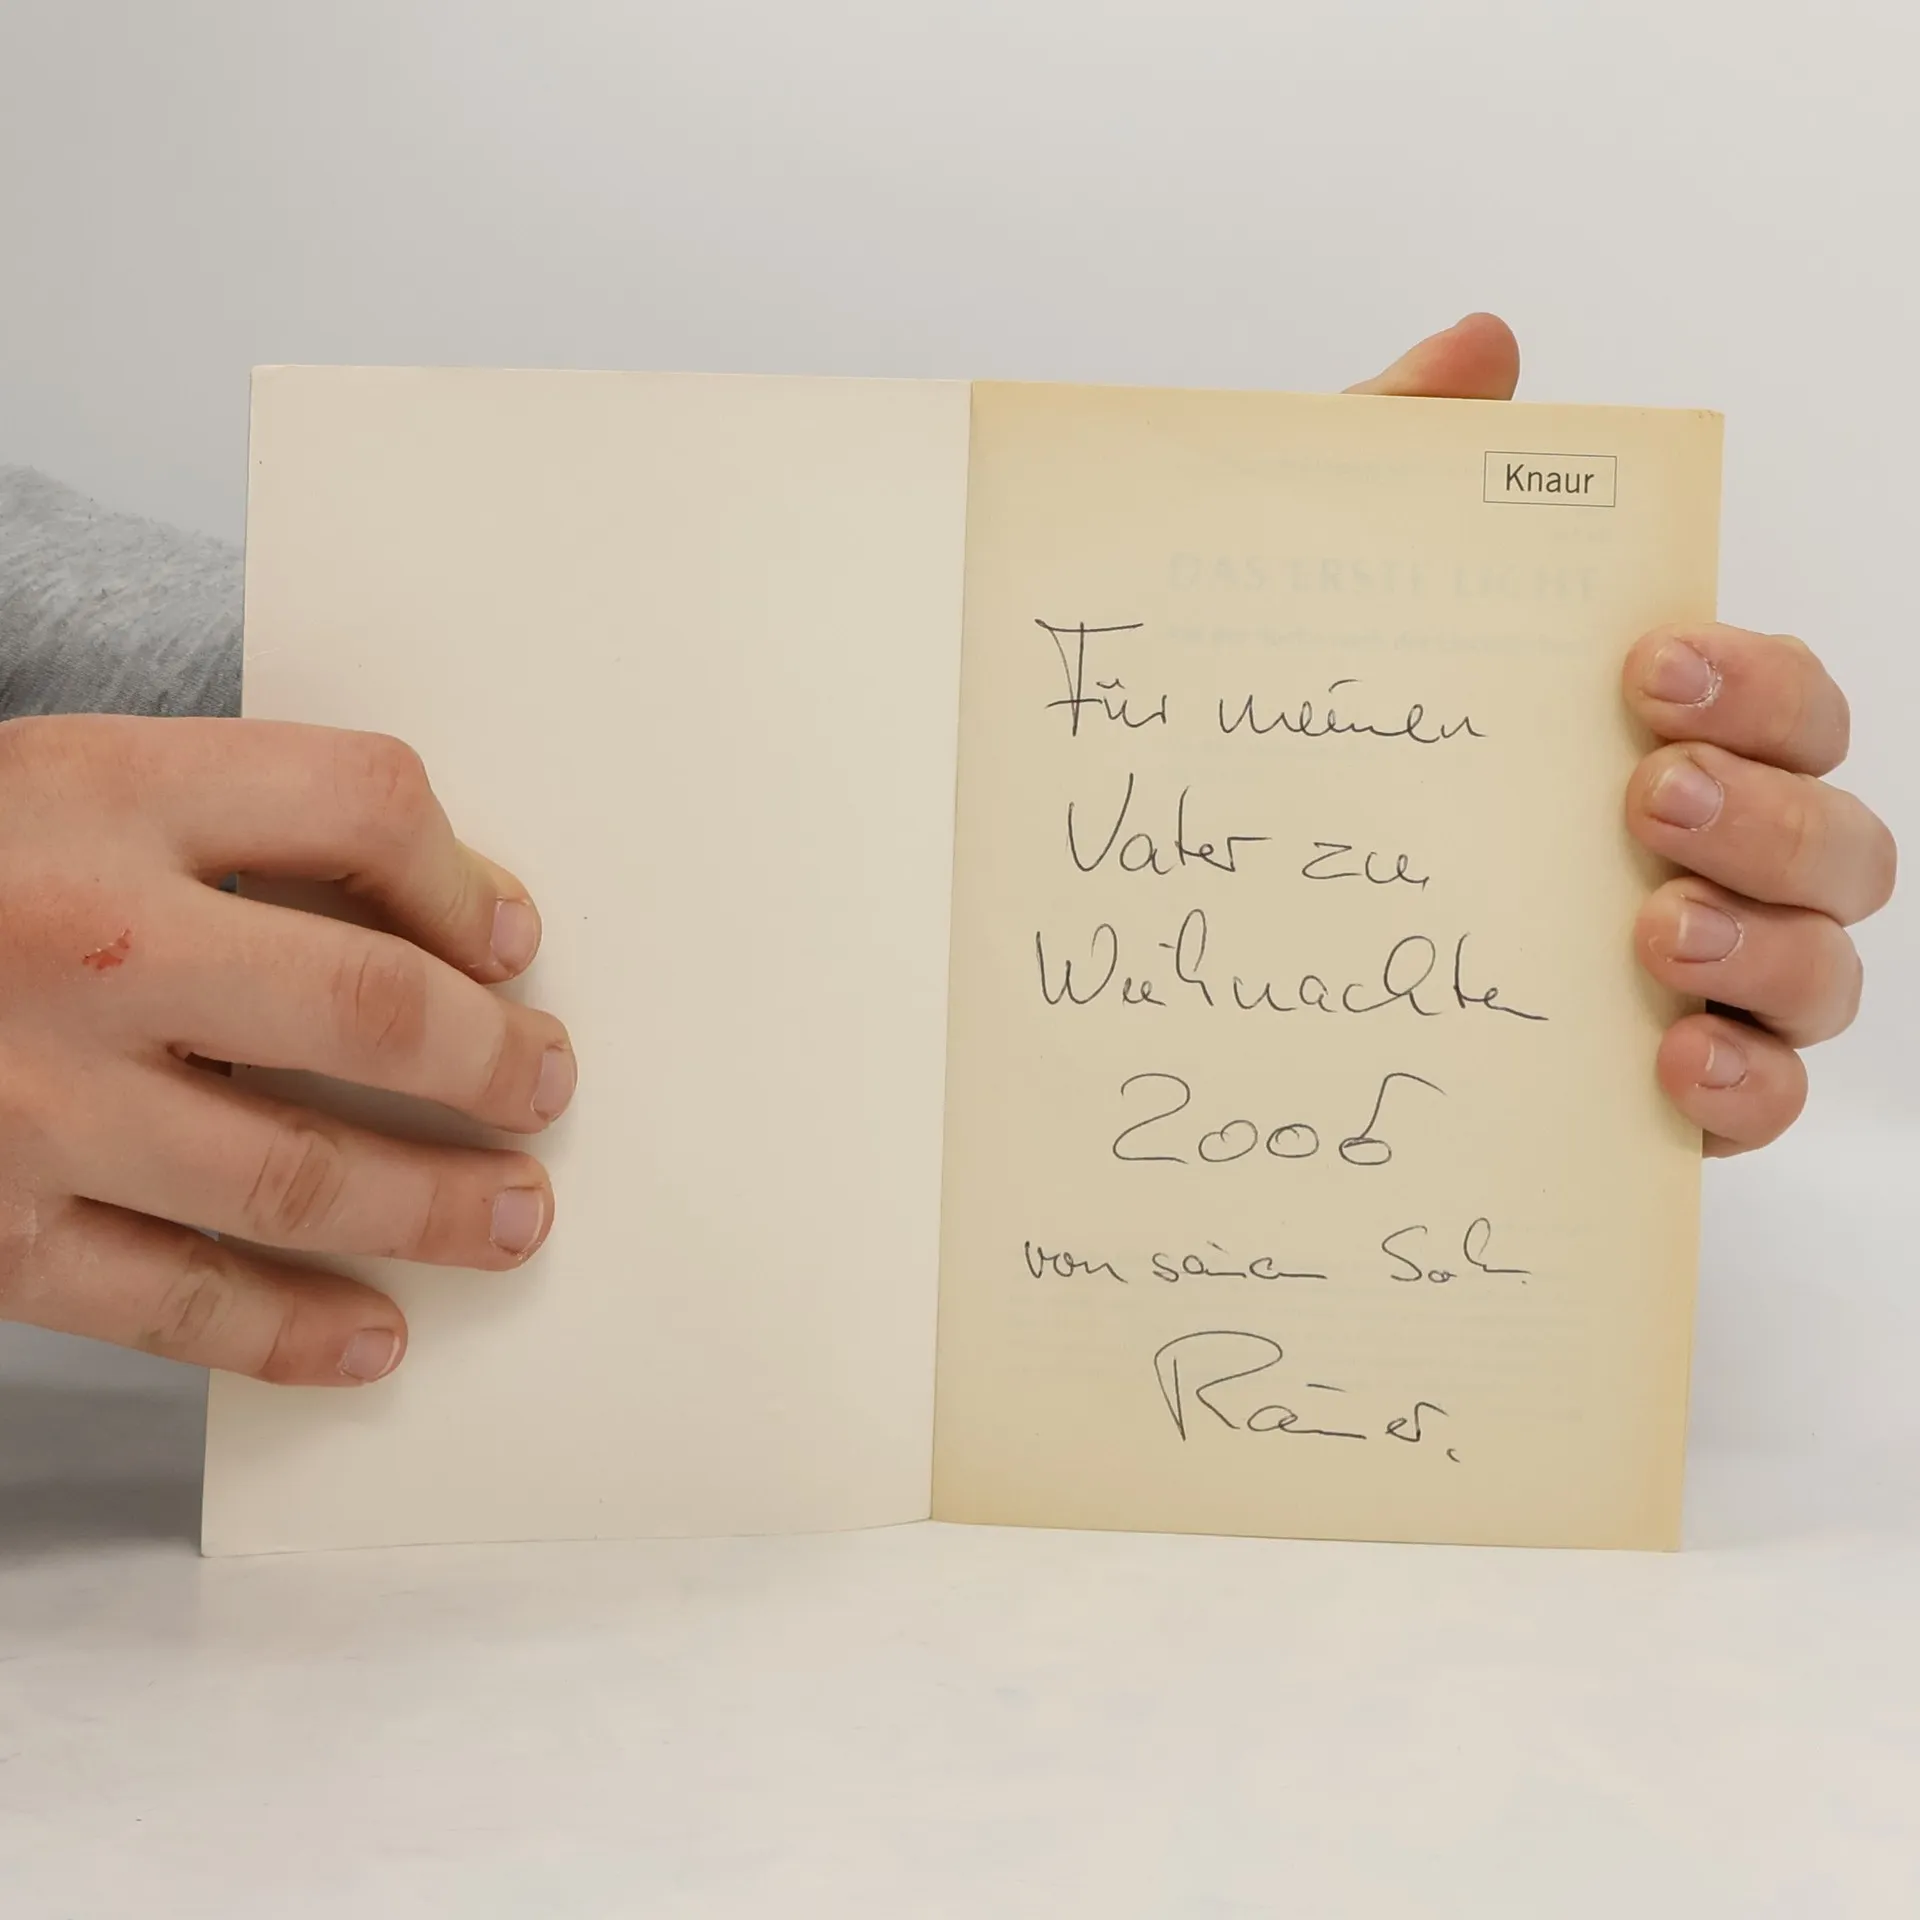 Knaur
DAS ERSTE LICHT
Für meinen
Vater zu
Weihnachten
2006
von seinem Sohn
Rainer.